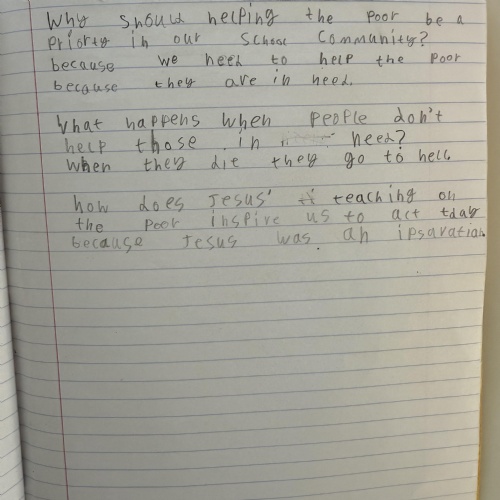 Why should helping the poor be a
priorty in our school community?
because we need to help the poor
because they are in need.
What happens when people don't
help those in need?
When they die they go to hell
how does Jesus' teaching on
the poor inspire us to act tday
because Jesus was an ipsaration.